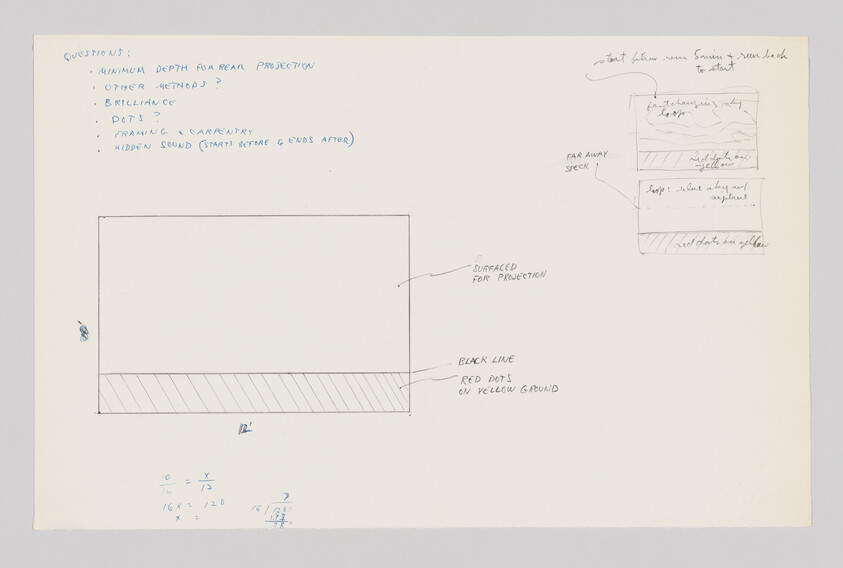 QUESTIONS:
· MINIMUM DEPTH FOR REAR PROJECTION
· OTHER METHODS?
· BRILLIANCE
· DOTS?
· FRAMING & CARPENTRY
· HIDDEN SOUND (STARTS BEFORE & ENDS AFTER)
start film runs 5 min & runs back
to start
fast changing sky
loop
red dots on
yellow
FAR AWAY
SPECK
loop: blue sky w/
airplane
red dots on yellow
SURFACED
FOR PROJECTION
BLACK LINE
RED DOTS
ON YELLOW GROUND
12'
10/16 = x/12
16x = 120
x =